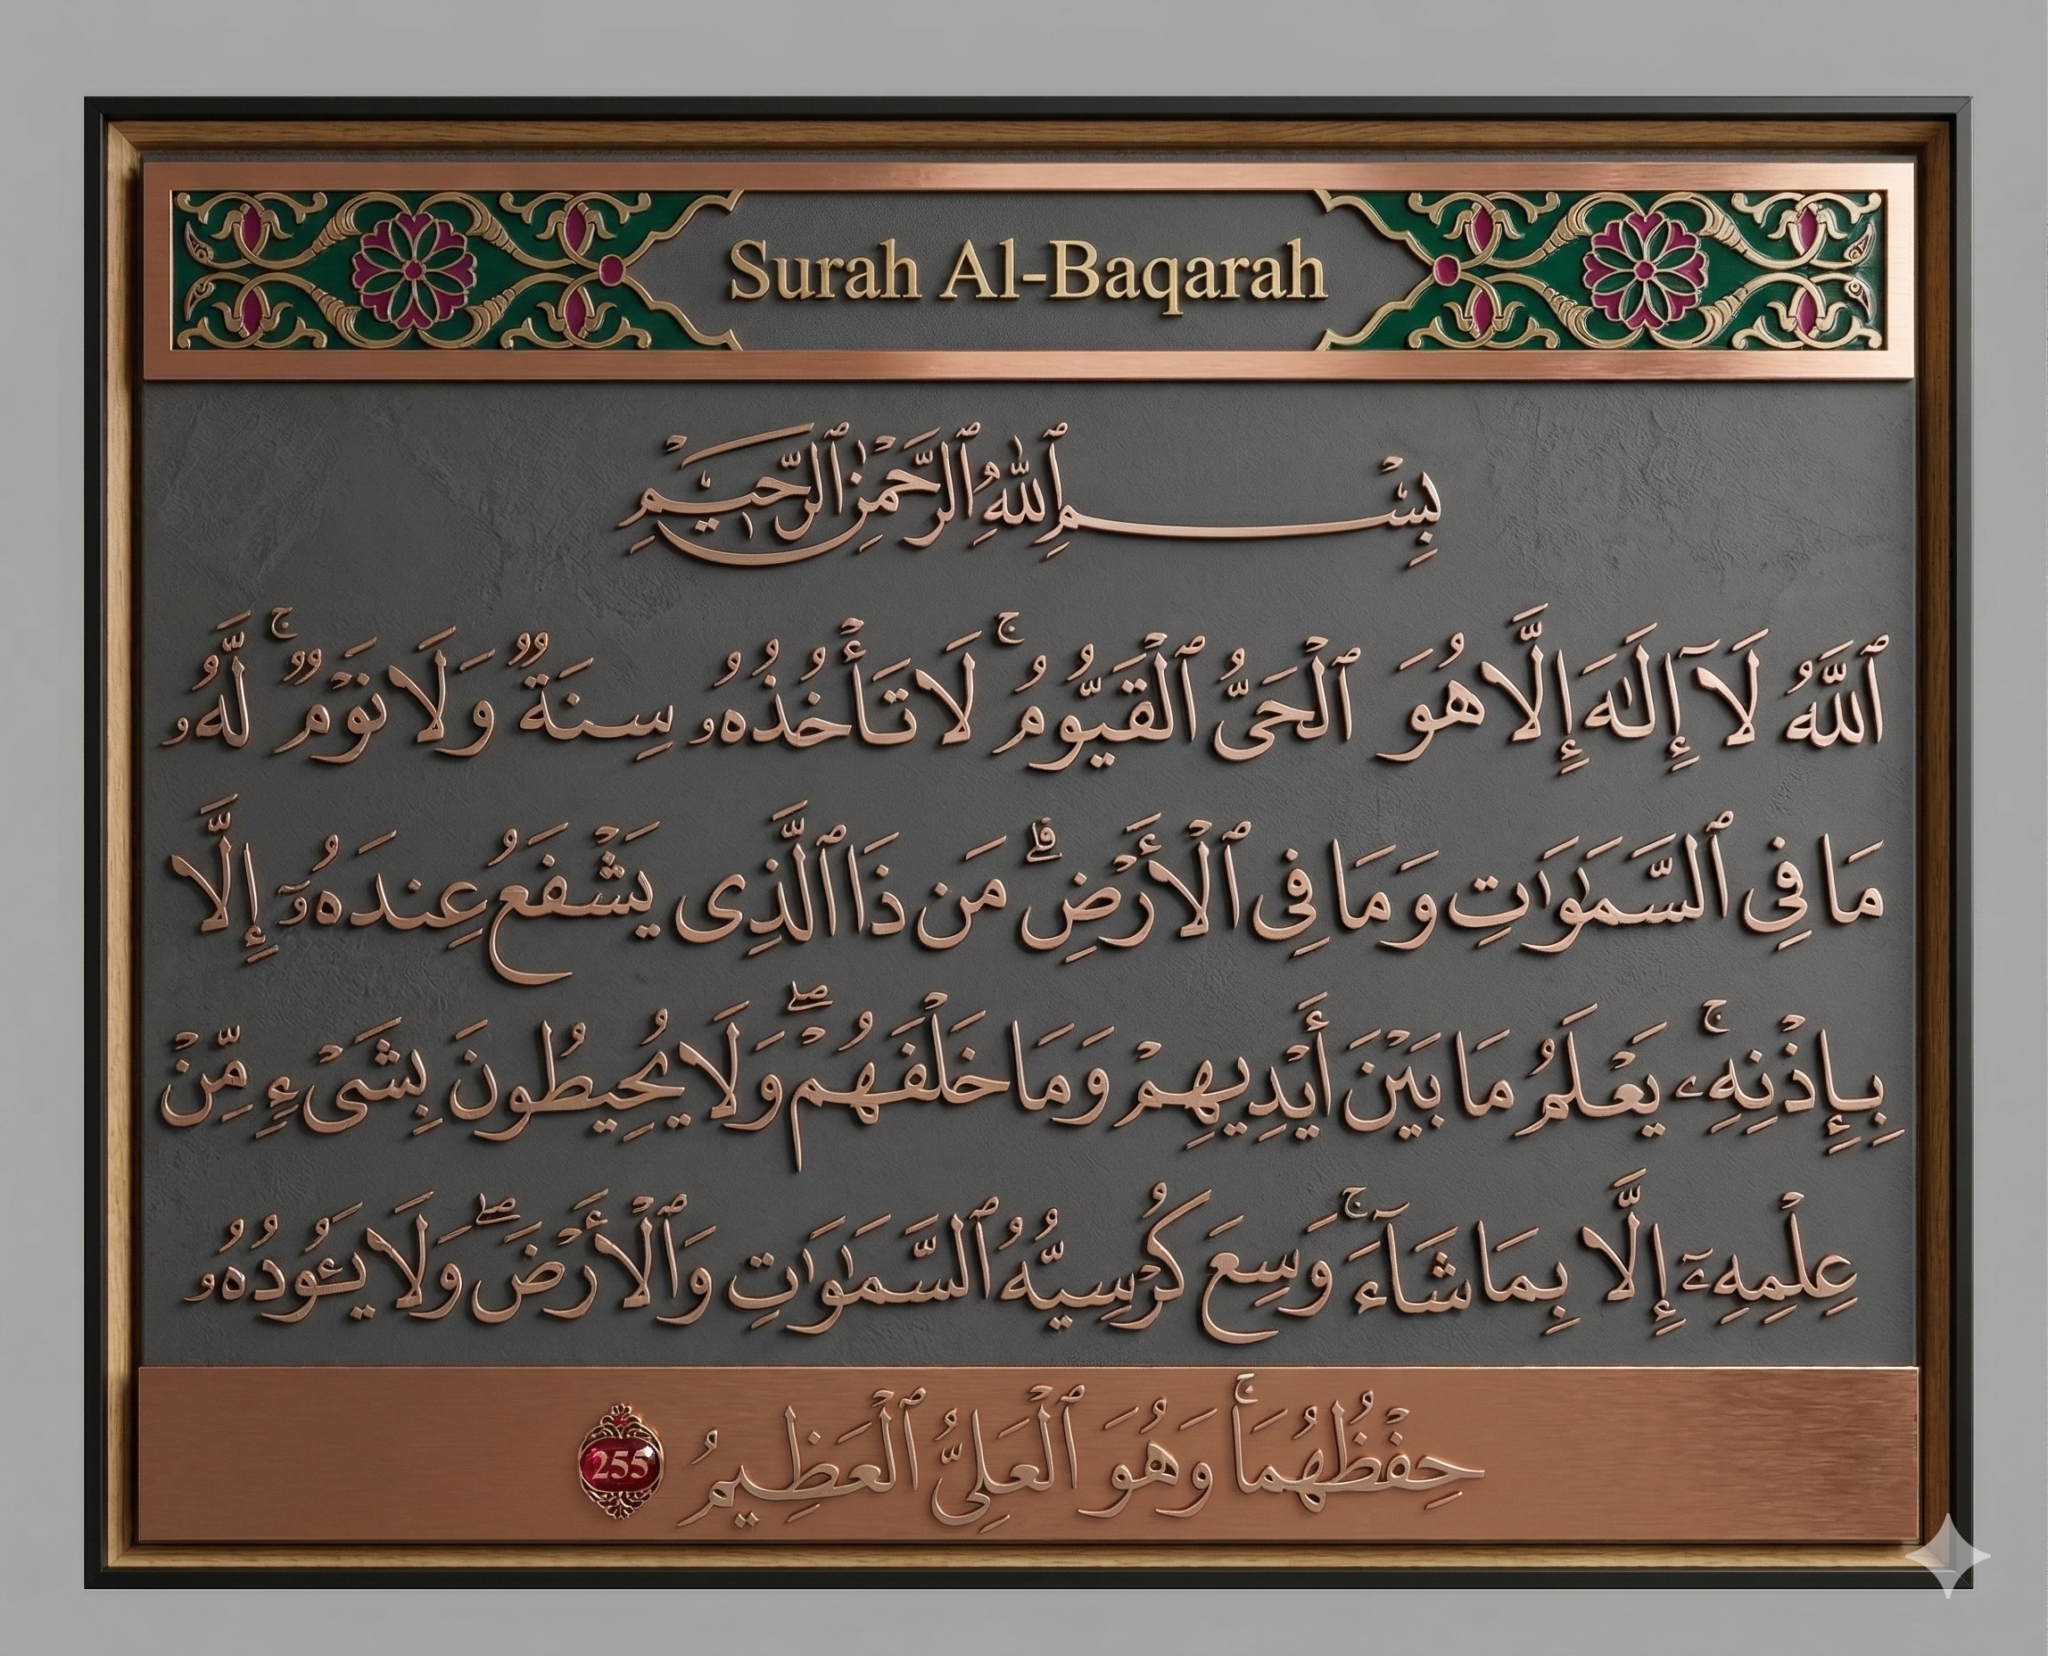 Surah Al-Baqarah
بِسْمِ ٱللَّهِ ٱلرَّحْمَٰنِ ٱلرَّحِيمِ
ٱللَّهُ لَآ إِلَٰهَ إِلَّا هُوَ ٱلْحَىُّ ٱلْقَيُّومُ ۚ لَا تَأْخُذُهُۥ سِنَةٌ وَلَا نَوْمٌ ۚ لَّهُۥ
مَا فِى ٱلسَّمَٰوَٰتِ وَمَا فِى ٱلْأَرْضِ ۗ مَن ذَا ٱلَّذِى يَشْفَعُ عِندَهُۥٓ إِلَّا
بِإِذْنِهِۦ ۚ يَعْلَمُ مَا بَيْنَ أَيْدِيهِمْ وَمَا خَلْفَهُمْ ۖ وَلَا يُحِيطُونَ بِشَىْءٍ مِّنْ
عِلْمِهِۦٓ إِلَّا بِمَا شَآءَ ۚ وَسِعَ كُرْسِيُّهُ ٱلسَّمَٰوَٰتِ وَٱلْأَرْضَ ۖ وَلَا يَـُٔودُهُۥ
حِفْظُهُمَا ۚ وَهُوَ ٱلْعَلِىُّ ٱلْعَظِيمُ 255